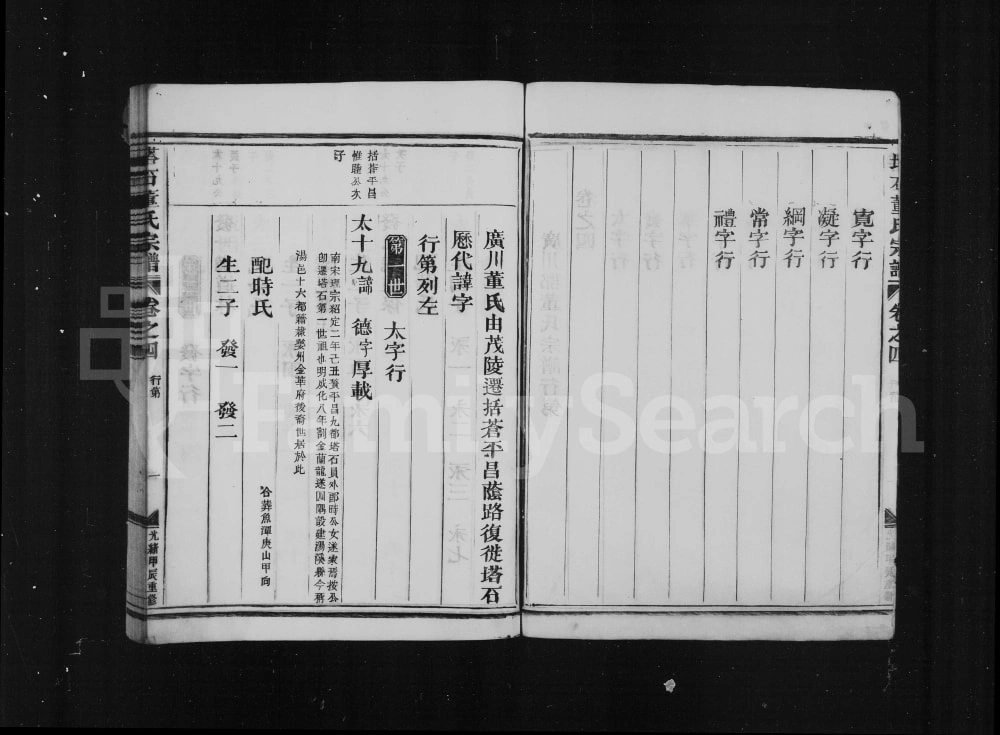 寛字行
凝字行
綱字行
常字行
禮字行
塔石董氏宗譜
卷之四
廣川董氏由茂陵遷括蒼平昌蔭路復徙塔石
歷代諱字
行第列左
第一世
太字行
括指平昌
惟睦公次
子
太十九諱 德字厚載
南宋理宗紹定二年己丑贅平昌九都塔石員外郎時公女遂家焉按公
卽遷塔石第一世祖也明成化八年割金蘭龍遂四隅設建湯溪縣今
湯邑十六都籍隸婺州金華府後裔世居於此
配時氏
合葬魚潭庚山甲向
生二子 發一 發二
塔石董氏宗譜
卷之四
行第
一
光緒甲辰重修
FamilySearch